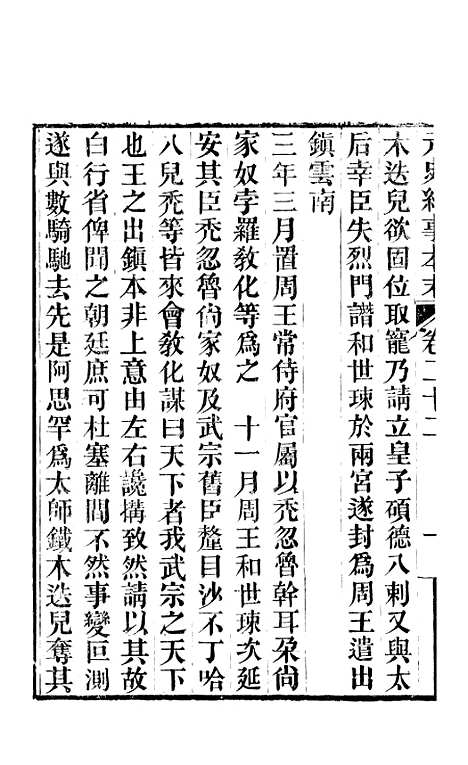 元史紀事本末 卷二十二 一
木迭兒欲固位取寵乃請立皇子碩德八剌又與太
后幸臣失烈門譖和世㻋於兩宮遂封爲周王遣出
鎮雲南
三年三月置周王常侍府官屬以禿忽魯幹耳朶尙
家奴孛羅敎化等爲之 十一月周王和世㻋次延
安其臣禿忽魯尙家奴及武宗舊臣釐日沙不丁哈
八兒禿等皆來會敎化謀曰天下者我武宗之天下
也王之出鎮本非上意由左右讒搆致然請以其故
白行省俾聞之朝廷庶可杜塞離間不然事變叵測
遂與數騎馳去先是阿思罕爲太師鐵木迭兒奪其